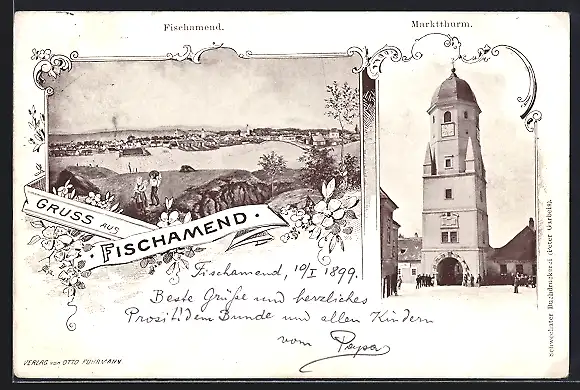 Fischamend.
Marktthurm.
GRUSS AUS
FISCHAMEND.
Fischamend, 19/I 1899.
Beste Grüße und herzliches
Prosit! dem Bunde und allen Kindern
vom Pepsa
VERLAG von OTTO PUHRMANN
Schwechater Buchdruckerei (Peter Garbeis).